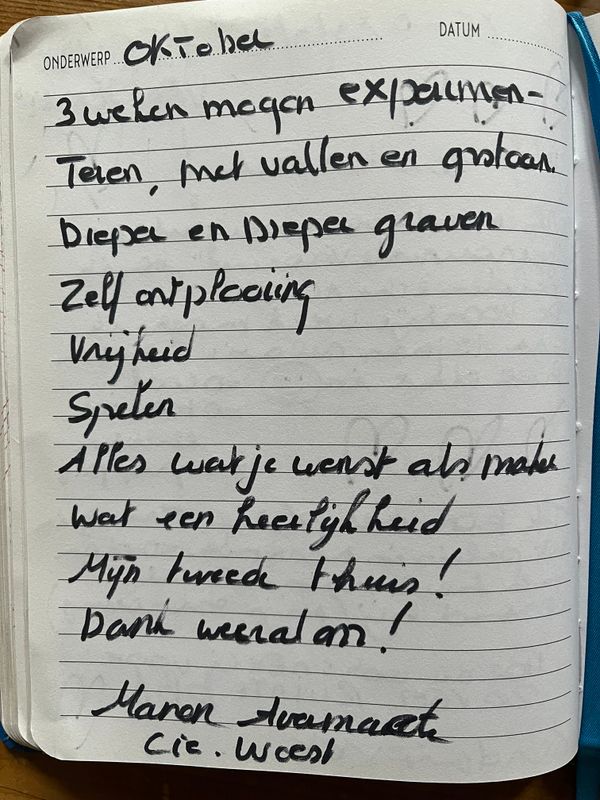 ONDERWERP Oktober DATUM
3 weken mogen experimen-
Teren, met vallen en opstaan.
Dieper en Dieper graven
Zelf ontplooiing
Vrijheid
Spelen
Alles wat je wenst als maker
Wat een heerlijkheid
Mijn tweede thuis!
Dank weeral om!
Manon Avermaete
Cie. Woest